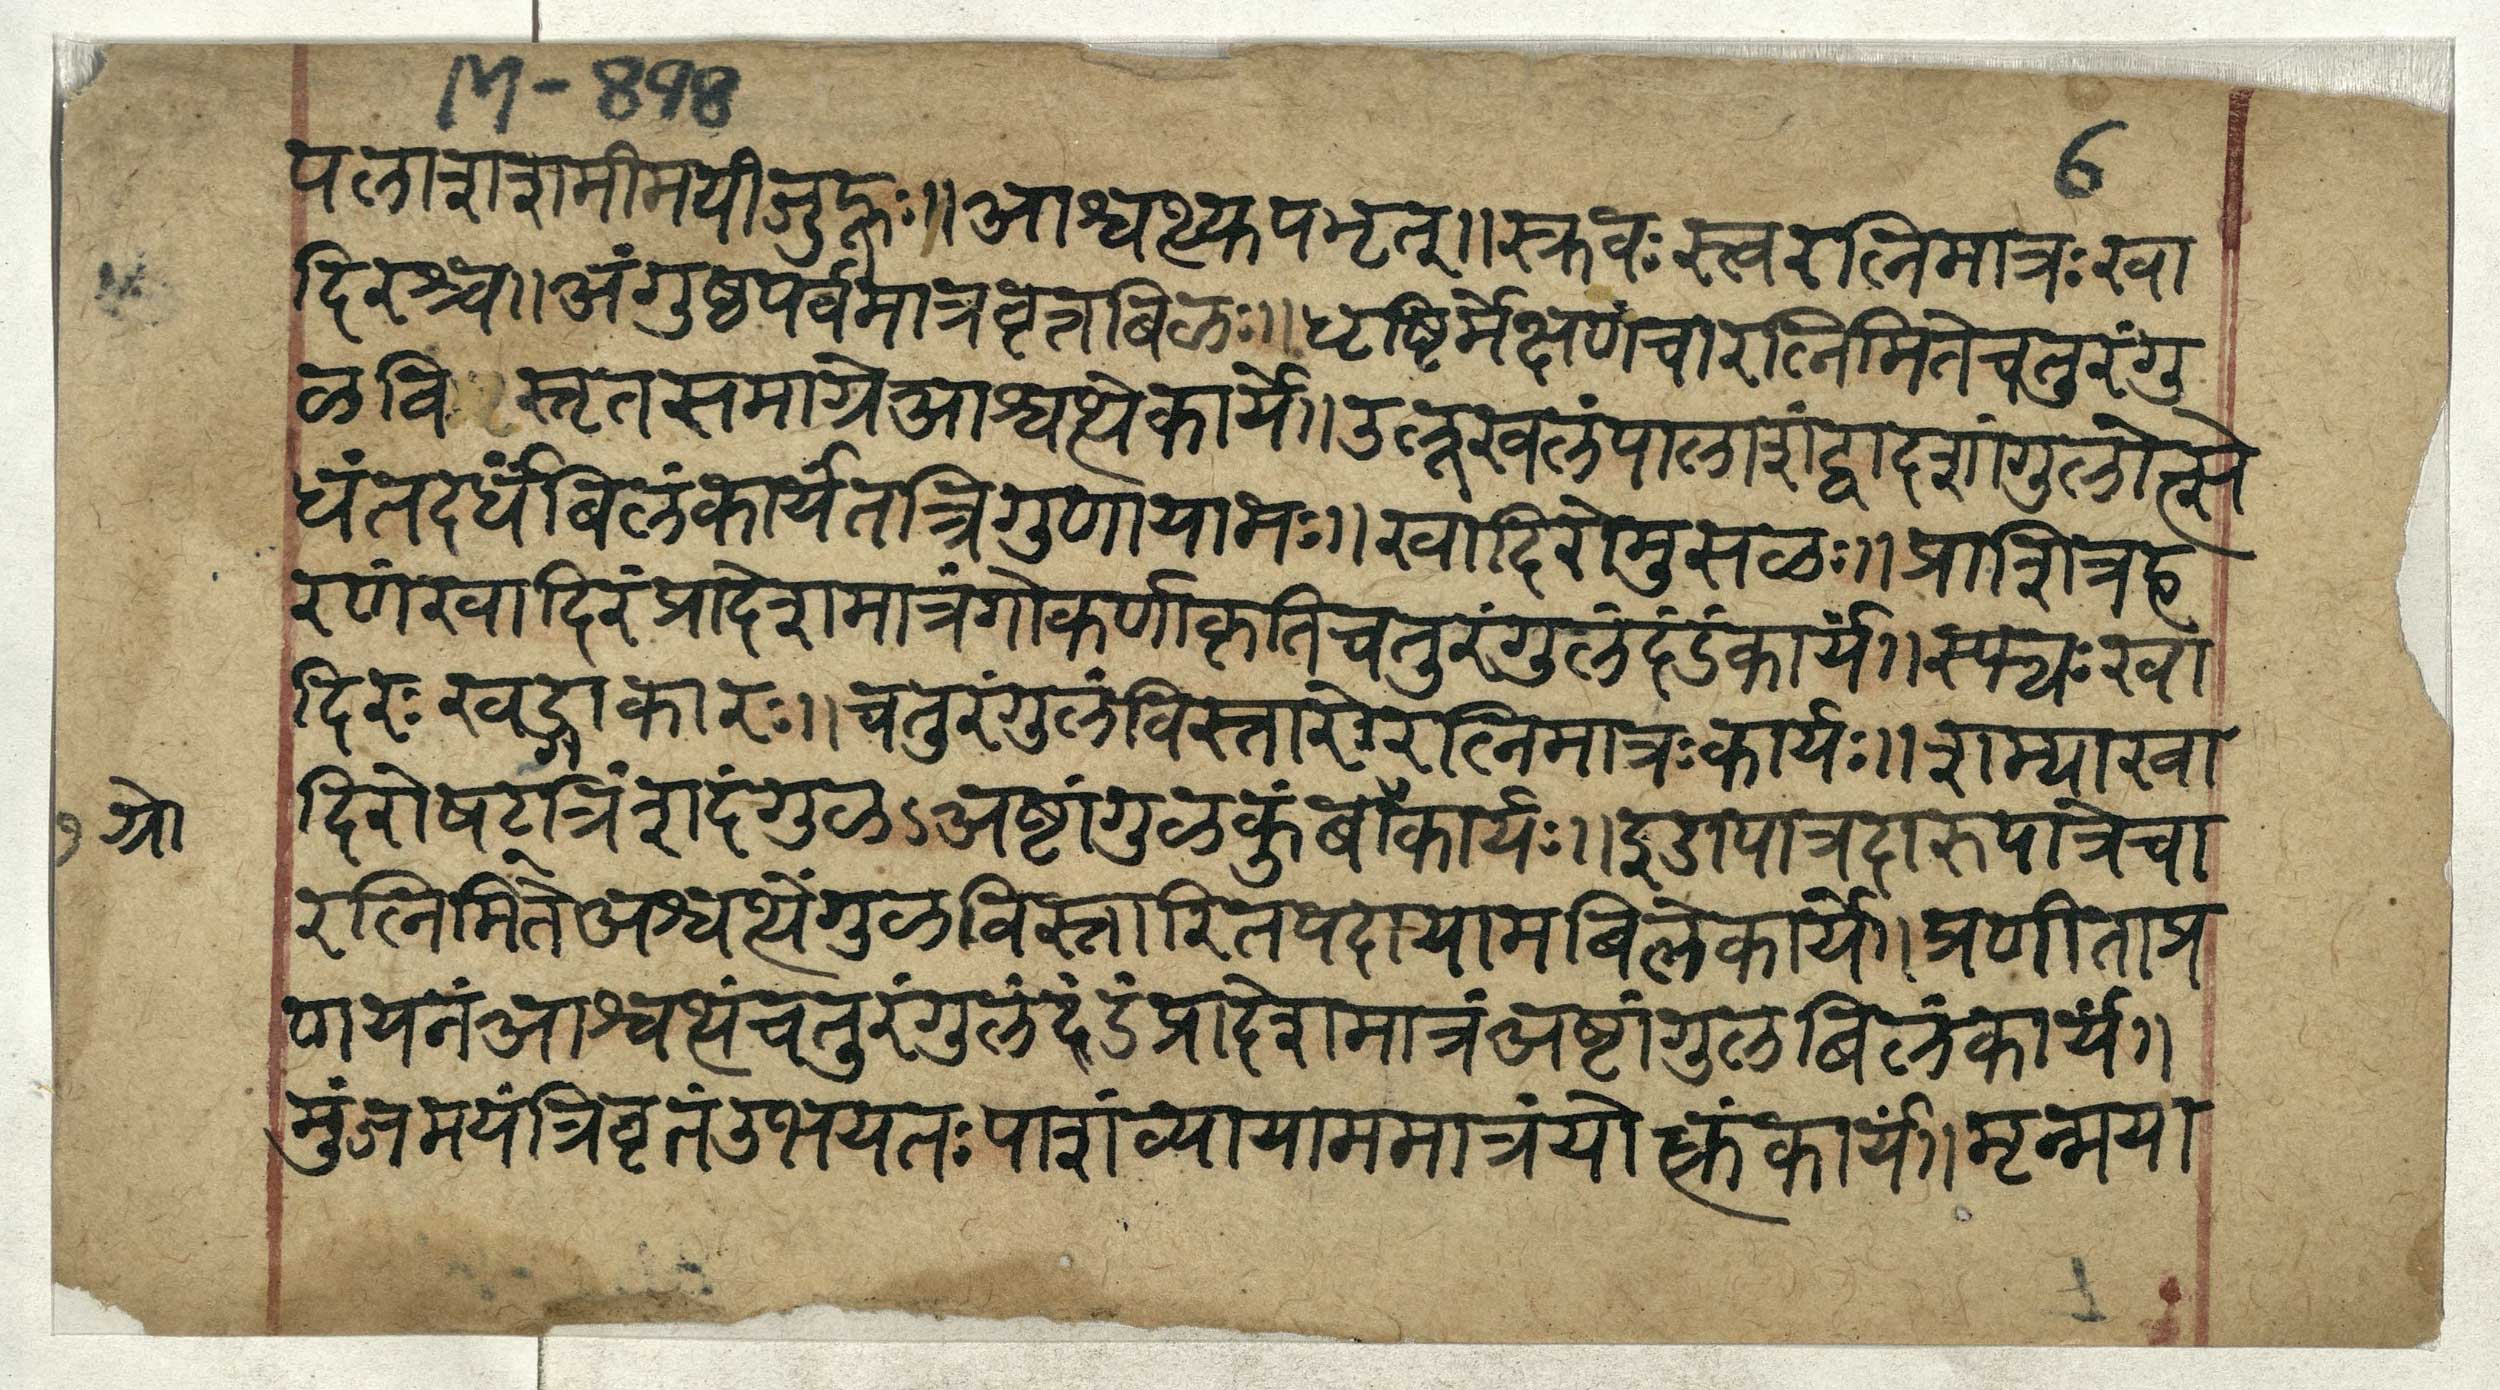 M-898
6
पलाशशमीमयीजुहूः॥आश्वथ्यूपभृत्॥स्रुवःस्त्वरत्निमात्रःखा
दिरश्च॥अंगुष्ठपर्वमात्रवृत्तबिळः॥धृष्टिर्मेक्षणंचारत्निमितेचतुरंगु
ळविस्तृतसमाग्रेआश्वथ्येकार्ये॥उलूखलंपालाशंद्वादशांगुलोत्से
धंतदर्धंबिलंकार्यंतत्त्रिगुणायामः॥खादिरोमुसळः॥प्राशित्रह
रणंखादिरंप्रादेशमात्रंगोकर्णाकृतिचतुरंगुलंदंडंकार्यं॥स्फ्यःखा
दिरःखड्गाकारः॥चतुरंगुलंविस्तारोरत्निमात्रःकार्यः॥शम्याखा
दिरोषट्त्रिंशदंगुळऽअष्टांगुळकुंबौकार्यः॥इडापात्रदारुपात्रेचा
ग्रो
रत्निमितेअश्वथ्येंगुळविस्तारितपदायामबिलेकार्ये।प्रणीताप्र
णयनंआश्वथ्यंचतुरंगुलंदंडंप्रादेशमात्रंअष्टांगुलबिलंकार्यं॥
मुंजमयंत्रिवृतंउभयतःपाशंव्यायाममात्रंयोक्त्रंकार्यं॥मृन्मया
1